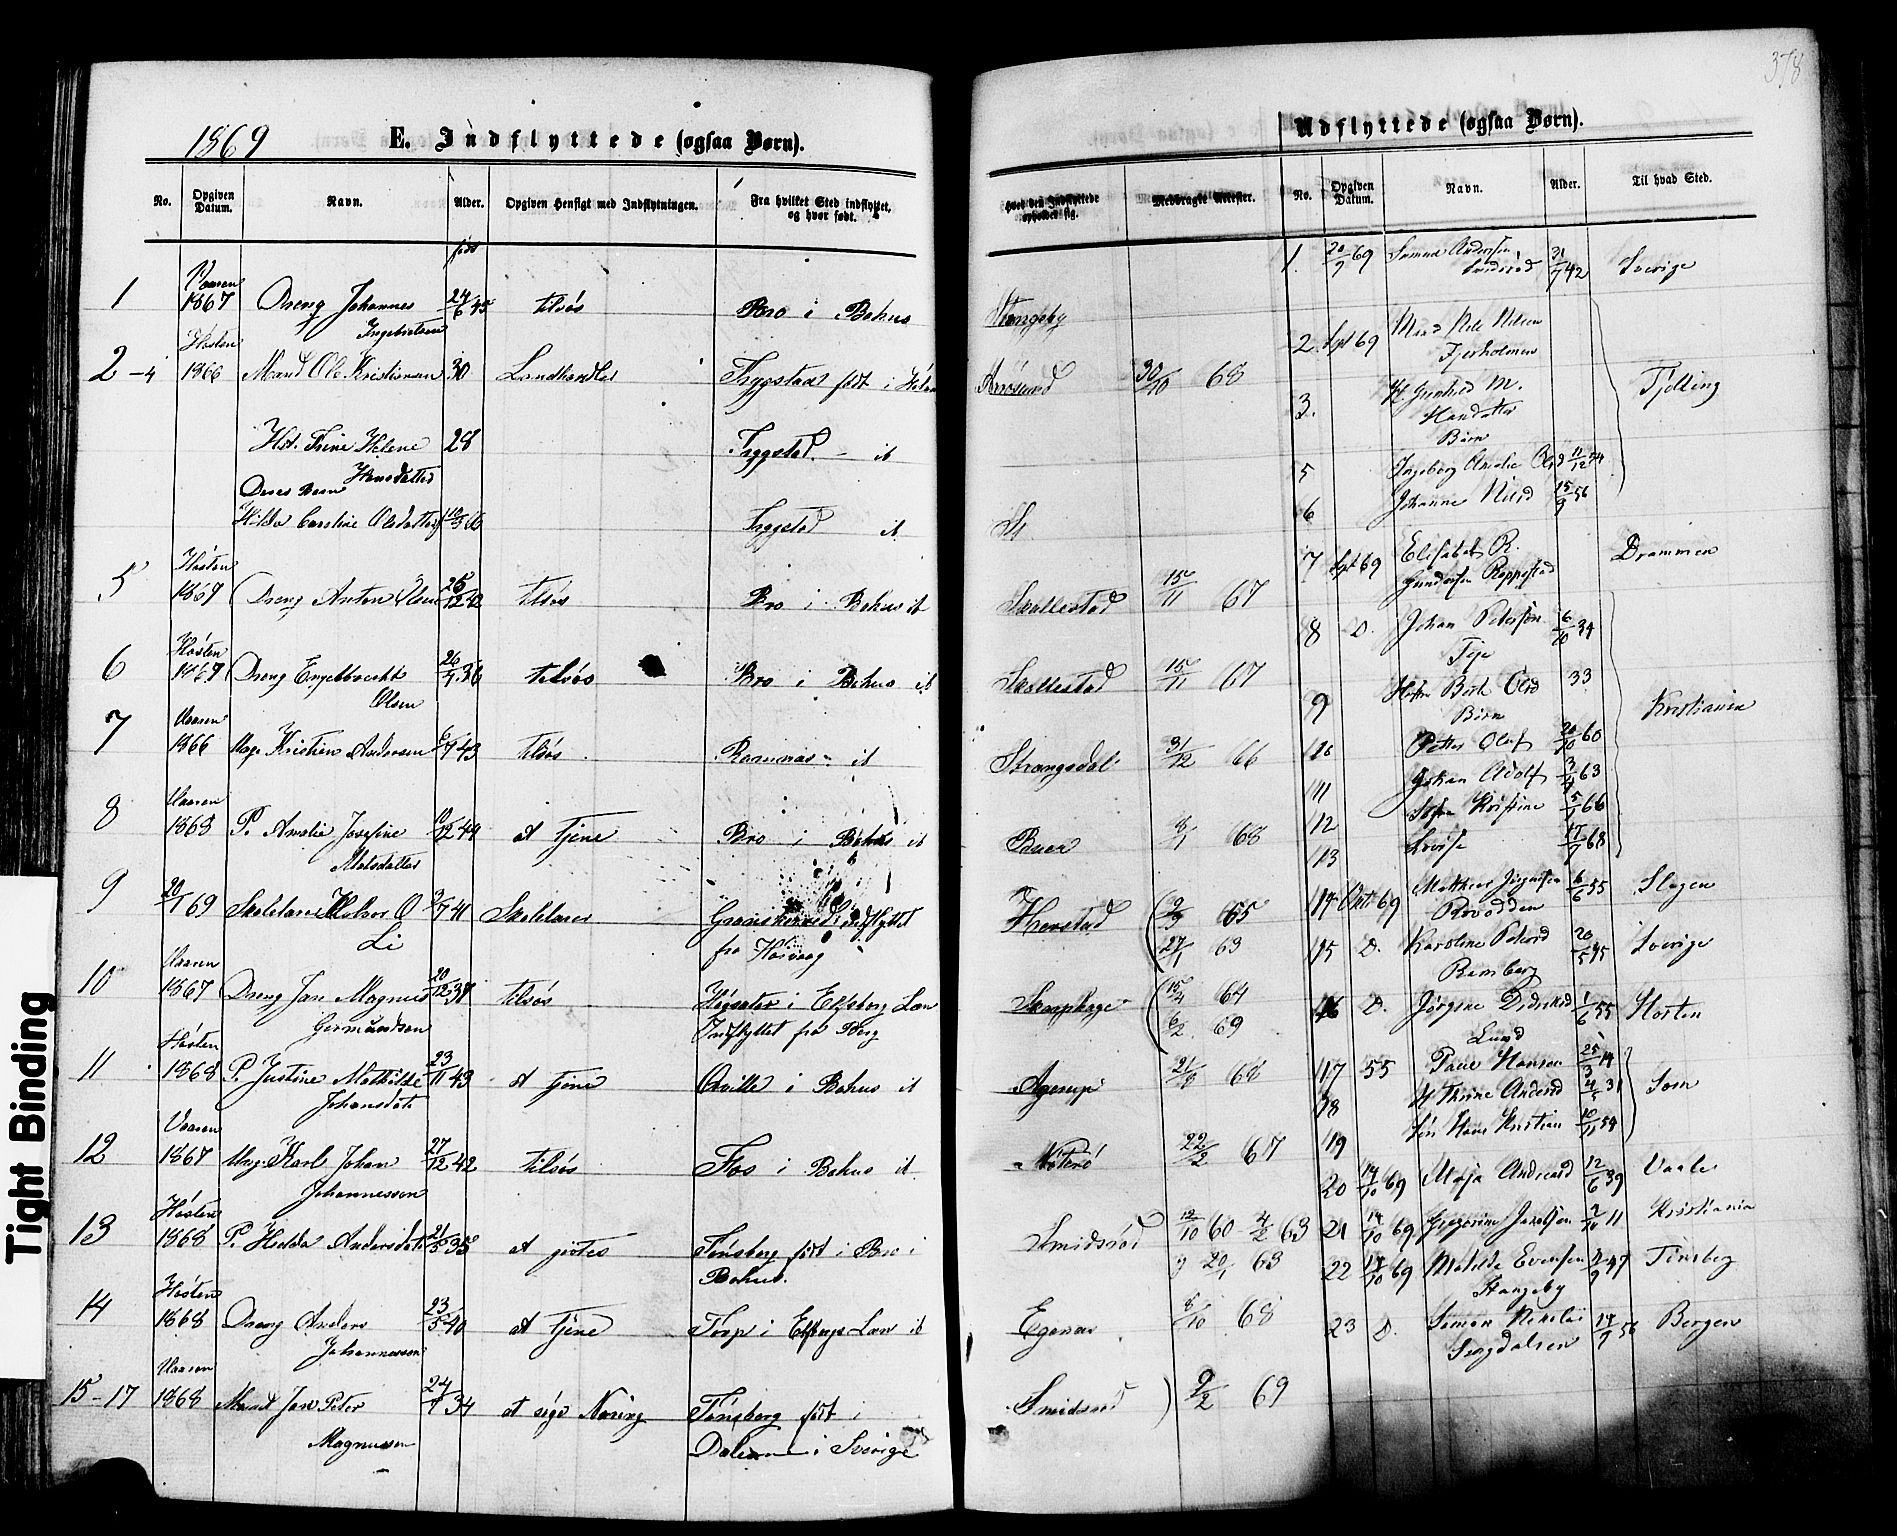 378
1869 E. Indflyttede (ogsaa Børn).
No. Opgiven Datum. Navn. Alder. Opgiven Hensigt med Indflytningen. Fra hvilket Sted indflyttet, og hvor født.
født
1 Vaaren 1867 Dreng Johannes 24/6 45 tilsøs Bro i Bohus
Ingebretsen
2-4 Høsten 1866 Mand Ole Kristiansen 30 Landhandler Trygstad født i
Hst. Trine Helene 28 Trygstad - it
Hansdatter
Deres Barn
Hilda Caroline Olsdatter Trygstad it
5 Høsten 1867 Dreng Anton Olsen 25/12 42 tilsøs Bro i Bohus it
6 Høsten 1867 Dreng Engelbrecht 26/7 36 tilsøs Bro i Bohus it
Olsen
7 Vaaren 1866 Ung. Kristian Andersen 6/7 43 tilsøs Ramnæs it
8 Vaaren 1868 P. Amalie Josefine 10/12 49 at tjene Bro i Bohus it
Matsdatter
9 20/1 69 Skolelærer Halvor O 3/7 41 Skolelærer indflyttet
Li fra Høivaag
10 Vaaren 1867 Dreng Jan Magnus 20/12 37 tilsøs Høgsæter i Elfsborg Læn
Germundsen Indflyttet fra Berg
11 Høsten 1868 P. Justine Mathilde 23/11 43 at tjene Qville i Bohus it
Johansdatt
12 Vaaren 1867 Ung. Karl Johan 27/12 42 tilsøs Fos i Bohus it
Johannessen
13 Høsten 1868 P. Hedda Andersdatt 21/5 35 at giftes Tønsberg født i Bro i
Bohus.
14 Høsten 1868 Dreng Anders 23/5 40 at tjene Torp i Elfsborgs Læn it
Johannessen
15-17 Vaaren 1868 Mand Jan Peter 24/7 34 at søge Næring Tønsberg født i
Magnussen Dalearne i Sverige
Hvor den Indflyttede opholder sig. Medbragte Attester.
Stangeby
Aarøsund 30/10 68
Skallestad 15/11 67
Skallestad 15/11 67
Strengsdal 31/12 66
Buer 8/1 68
Herstad 2/3 65
27/1 63
15/4 64
6/2 69
Agerup 21/8 68
Nøterø 22/2 67
Smidsrød 12/10 60 - 4/2 63
g 20/1 63
Egenæs 8/10 68
Smidsrød 9/2 69
Udflyttede (ogsaa Børn).
No. Opgiven Datum. Navn. Alder. Til hvad Sted.
1. 20/9 69 Samuel Andersen 31/7 42 Sverige
Smidsrød
2 Spt 69 Mand Nils Nilsen
Fjærholmen
3. H. Gunhild M. Tjølling
Hansdatter
Børn
5 Ingeborg Amalie Olsd 11/12 54
6 Johanne Nilsd 15/9 56
7 Spt 69 Elisabet R. Drammen
Gundersen Roppestad
8 D. Johan Petersen 6/10 34
Teie
9 Hstru Bert. Olsd 33 Kristiania
Børn
10 Petter Olaf 20/10 60
11 Johan Adolf 63
12 Sofie Kristine 5/1 66
13 Lovise 17/7 68
14 Okt 69 Mathias Jørgensen 6/6 55 Slagen
Rovodden
15 D. Karoline Petersd 20/5 45 Sverige
Ramberg
16 D. Jørgine Didriksd 1/6 55 Horten
Lund
17 55 Paul Hansen 25/3 14
18 H Thrine Andersd 4/5 31 Sem
19 Søn Hans Kristian 10/11 54
20 14/10 69 Maja Andreasd 12/6 39 Vaale
21 14/10 69 Gregorine Jakobsen 2/10 11 Kristiania
22 14/10 69 Matilde Evensen 11/9 47 Tønsberg
Stangeby
23 D. Simon Nikolai 14/9 56 Bergen
Sengdalsen
Tight Binding